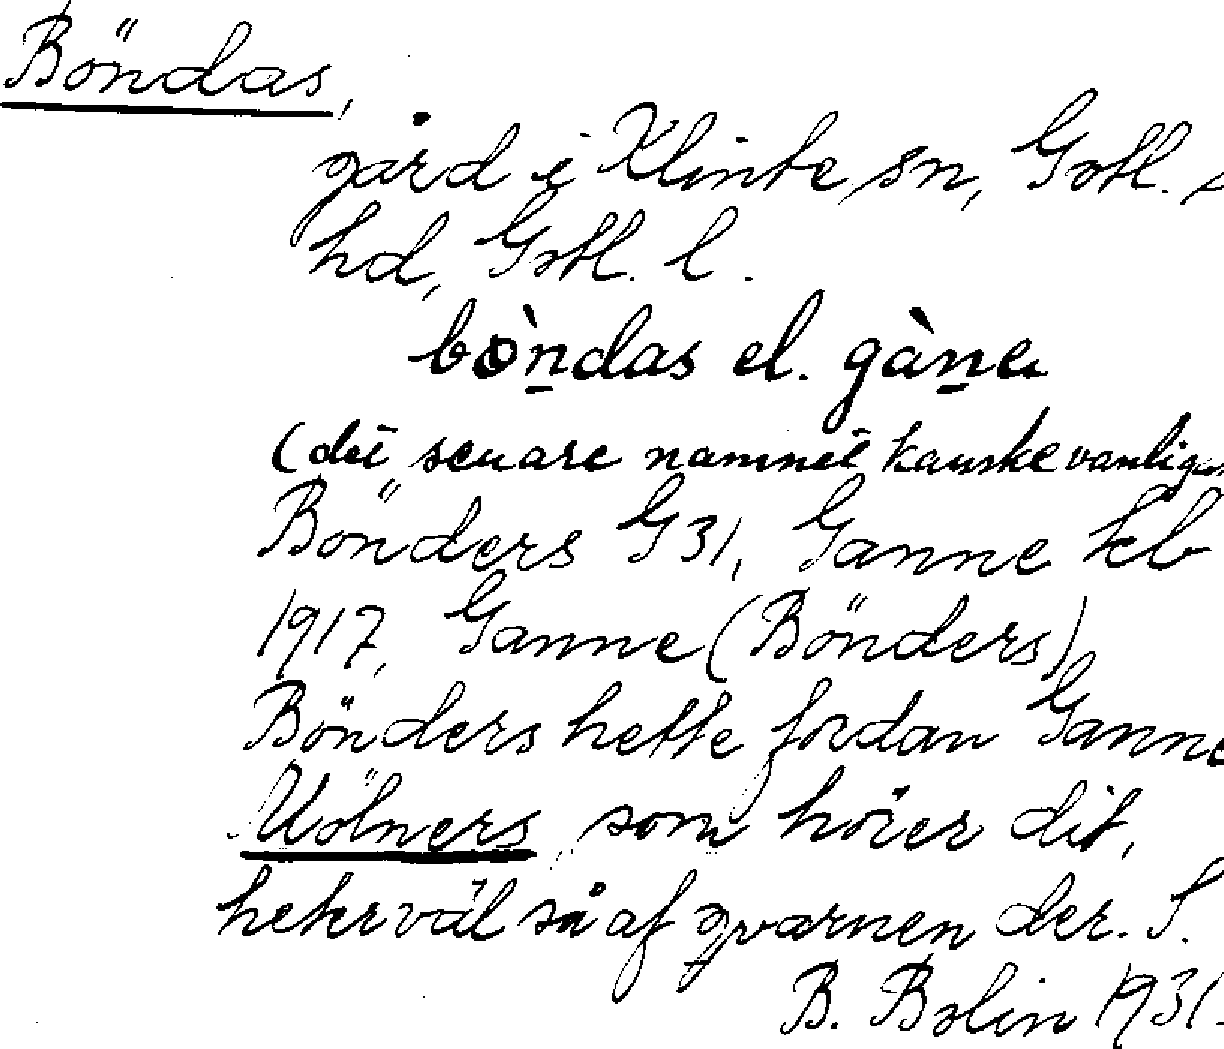 Böndas,
gård i Klinte sn, Gotl. s
hd, Gotl. l.
bòndas el. gàne
(det senare namnet kanske vanligar
Bönders G31, Ganne kb
1917, Ganne (Bönders)
Bönders hette fordan Ganne
Mölners, som hörer dit,
heter väl så af qvarnen der. S.
B. Bolin 1931.